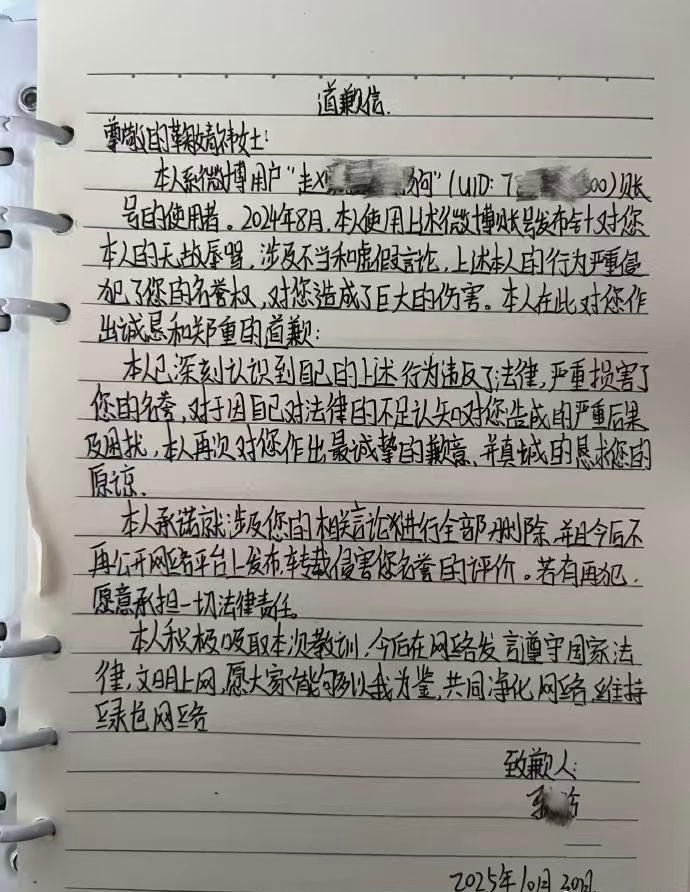 道歉信.
尊敬的鞠婧祎女士:
本人系微博用户"赵 狗"(UID: 7 300)账
号的使用者。2024年8月,本人使用上述微博账号发布针对您
本人的无故辱骂,涉及不当和虚假言论,上述本人的行为严重侵
犯了您的名誉权,对您造成了巨大的伤害。本人在此对您作
出诚恳和郑重的道歉:
本人已深刻认识到自己的上述行为违反了法律,严重损害了
您的名誉,对于因自己对法律的不足认知对您造成的严重后果
及困扰,本人再次对您作出最诚挚的歉意、并真诚的恳求您的
原谅.
本人承诺就涉及您的相关言论进行全部删除,并且今后不
再公开网络平台上发布,转载侵害您名誉的评价。若有再犯,
愿意承担一切法律责任。
本人积极吸取本次教训,今后在网络发言遵守国家法
律,文明上网,愿大家能够以我为鉴,共同净化网络,维持
绿色网络
致歉人:
2025年10月30日